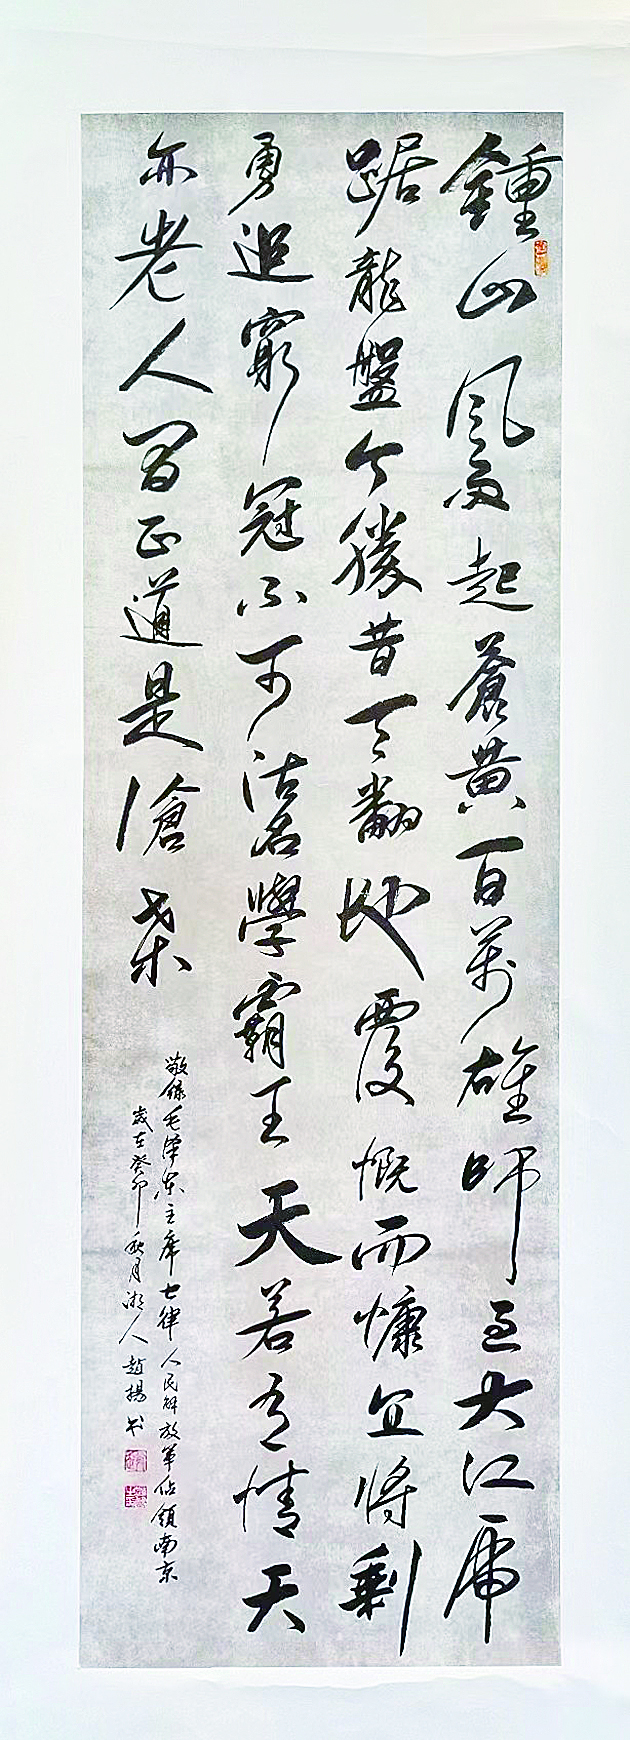 鍾山風雨起蒼黃百萬雄師過大江虎
踞龍盤今勝昔天翻地覆慨而慷宜將剩
勇追窮寇不可沽名學霸王天若有情天
亦老人間正道是滄桑
敬錄毛澤東主席七律人民解放軍佔領南京
歲在癸卯秋月湘人趙揚書